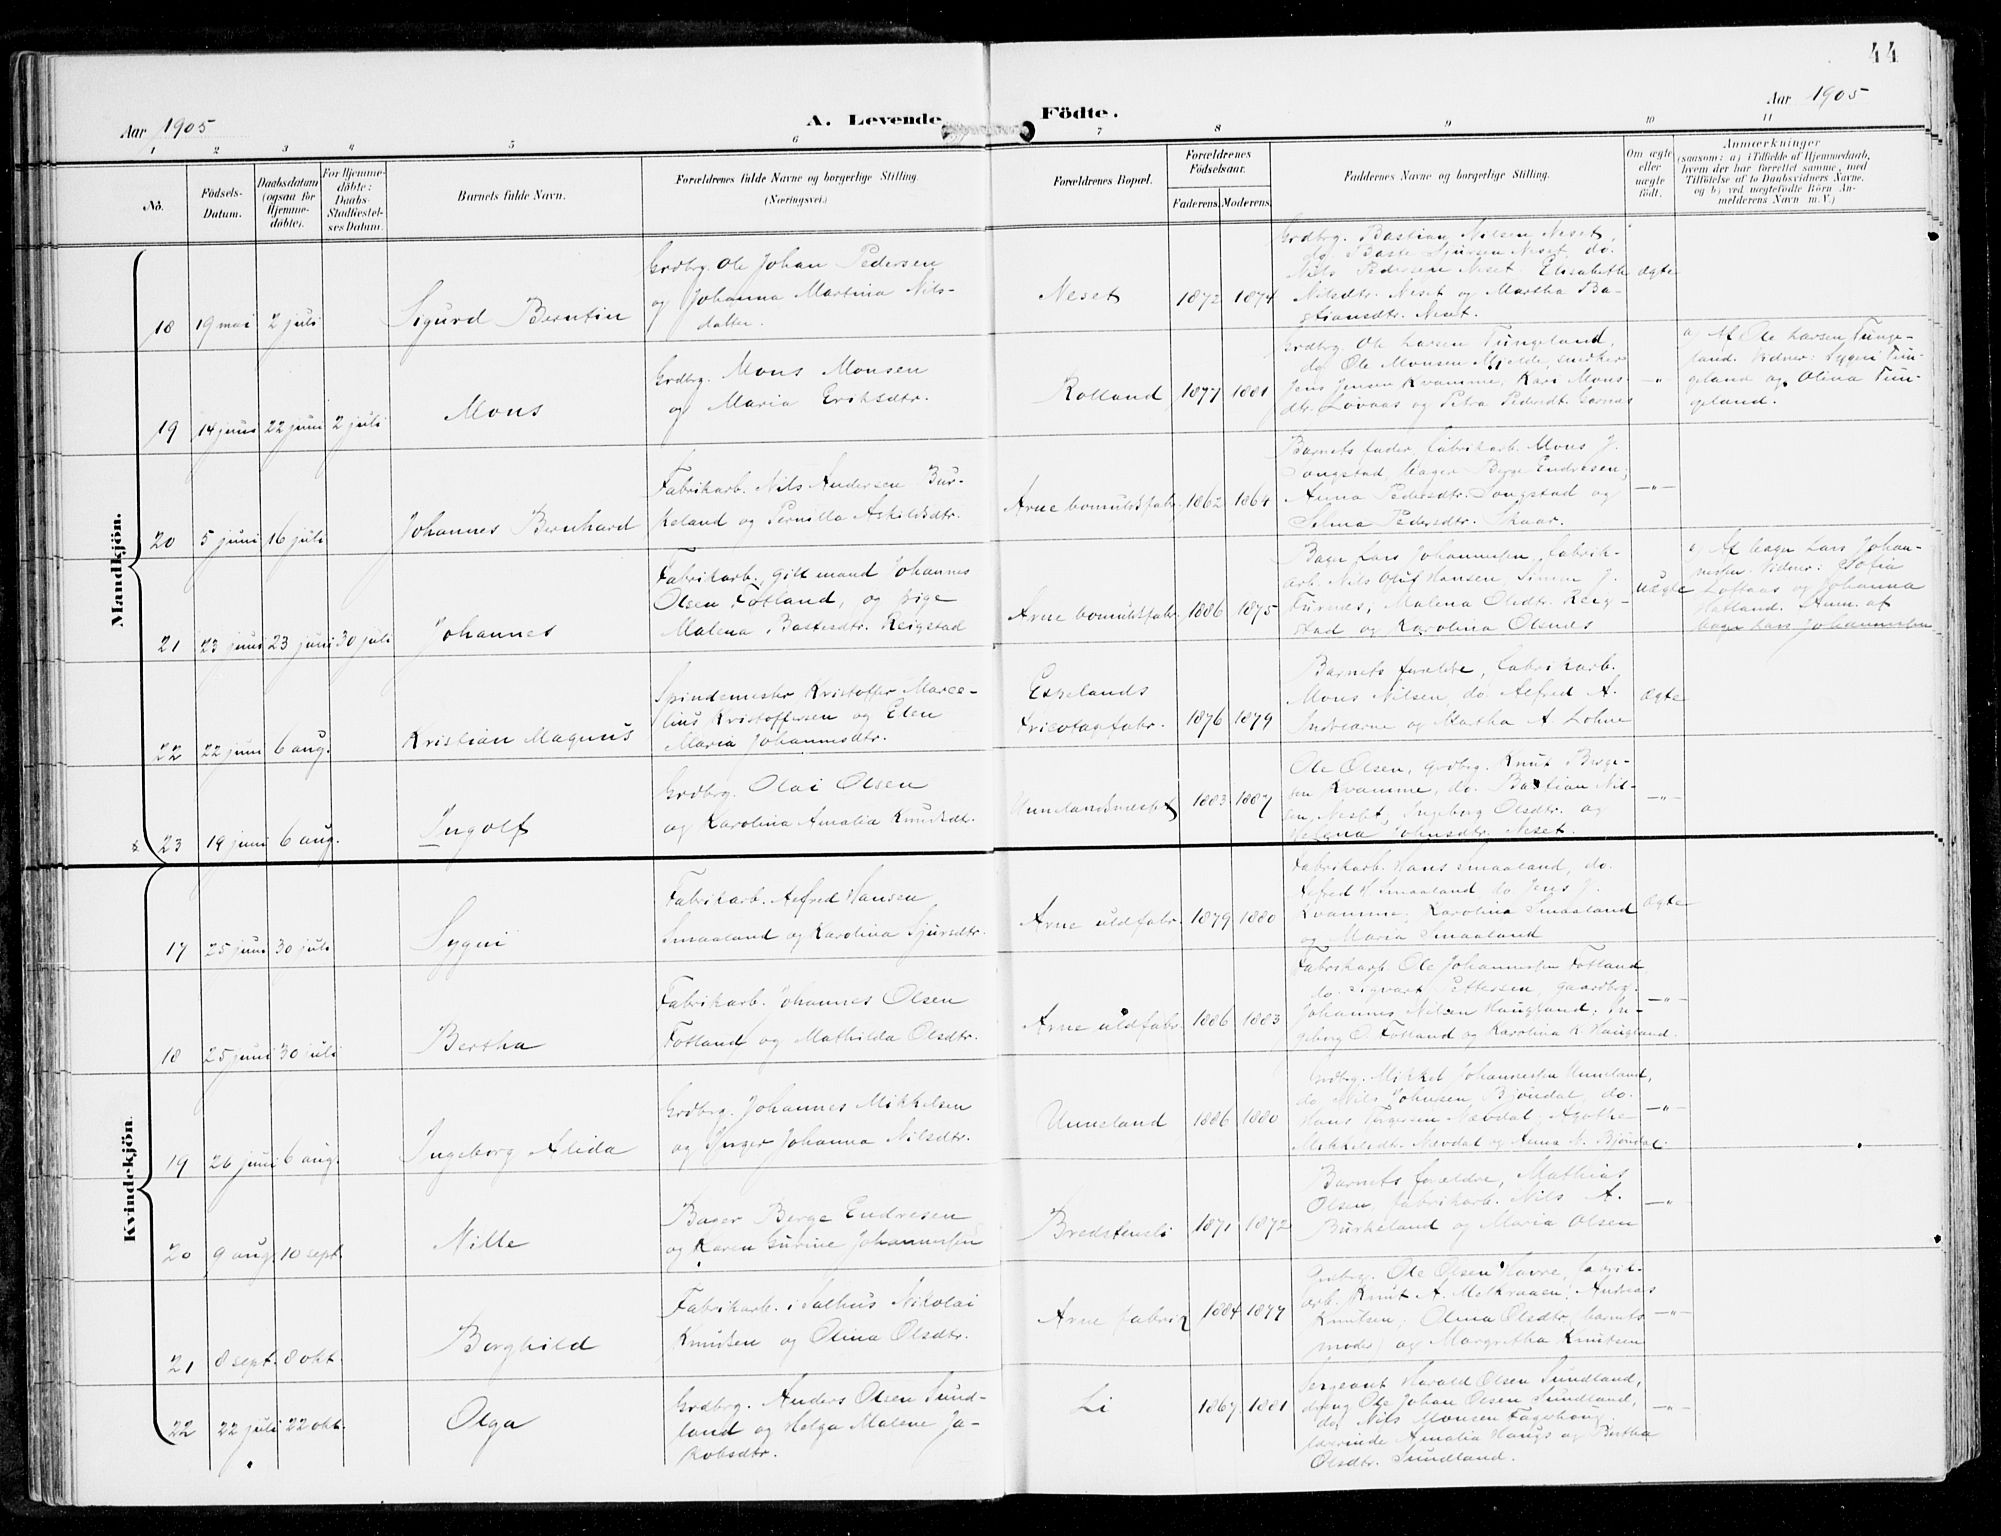 44
Aar 1905
A. Levende
Födte.
Aar 1905
1 2 3 4 5 6 7 8 9 10 11
No.
Födsels-
Datum.
Daabsdatum
(ogsaa for
Hjemme-
döbte).
For Hjemme-
döbte:
Daabs-
Stadfæstel-
ses Datum.
Barnets fulde Navn.
Forældrenes fulde Navne og borgerlige Stilling
(Næringsvei.)
Forældrenes Bopæl.
Forældrenes
Födselsaar.
Faderens.
Moderens.
Faddernes Navne og borgerlige Stilling.
Om ægte
eller
uægte
född.
Anmærkninger
(saasom: a) i Tilfælde af Hjemmedaab,
hvem der har forrettet samme, med
Tilföielse af to Daabsvidners Navne,
og b) ved uægtefödte Börn An-
melderens Navn m.V.)
Mandkjön.
18 19 mai 2 juli
Sigurd Berntin
Grdbrg. Ole Johan Pedersen
og Johanna Martina Nils-
datter.
Neset
1872 1874
Grdbrg. Bastian Nilsen Neset,
do. Baste Sjursen Neset, do.
Nils Pedersen Neset, Elisabeth
Nilsdtr. Neset og Martha Ba-
stiansdtr. Neset.
ægte
19 14 juni 22 juni 2 juli
Mons
Grdbrg. Mons Monsen
og Maria Eriksdtr.
Rolland
1877 1881
Grdbrg. Ole Larsen Tungeland,
do. Ole Monsen Mjelde, snedker
Jens Jensen Kvamme, Kari Mons-
dtr. Lövaas og Petra Pedersdt. Garnes
-"-
a) Af Ole Larsen Tunge-
land. Vidner: Sygni Tun-
geland og Olina Tun-
geland.
20 5 juni 16 juli
Johannes Bernhard
Fabrikarb. Nils Andersen Bur-
keland og Pernilla Askildsdtr.
Arne bomuldsfabr.
1862 1864
Barnets fader, fabrikarb. Mons J.
Songstad, bager Berge Endresen,
Anna Pedersdtr. Songstad og
Selma Pedersdtr. Skaar.
-"-
21 23 juni 23 juni 30 juli
Johannes
Fabrikarb., gift mand Johannes
Olsen Fotland, og pige
Malena Bastesdtr. Reigstad
Arne bomuldsfabr.
1886 1875
Bager Lars Johannessen, fabrik-
arb. Nils Oluf Hansen, Simon J.
Furnes, Malena Olsdtr. Reig-
stad og Karolina Olsnes
uægte
a) Af bager Lars Johan-
nessen. Vidner: Sofia
Loftaas og Johanna
Hatland. Anm. af
bager Lars Johannessen
22 22 juni 6 aug.
Kristian Magnus
Spindemester Kristoffer Marce-
lius Kristoffersen og Elen
Maria Johannesdtr.
Espelands
tricotagefabr.
1876 1879
Barnets forældre, fabrikarb.
Mons Nilsen, do. Alfred A.
Indrearne og Martha A. Lohne
ægte
23 19 juni 6 aug.
Ingolf
Grdbrg. Olai Olsen
og Karolina Amalia Knudsdt.
Unnelandsneset
1883 1887
Ole Olsen, grdbrg. Knut Berge-
sen Kvamme, do. Bastian Nil-
sen Neset, Ingeborg Olsdtr. og
Helena Johnsdtr. Neset.
-"-
Kvindekjön.
17 25 juni 30 juli
Sygni
Fabrikarb. Alfred Hansen
Smaaland og Karolina Sjursdtr.
Arne uldfabr.
1879 1880
Fabrikarb. Hans Smaaland, do.
Alfred H. Smaaland, do. Jens J.
Kvamme, Karolina Smaaland
og Maria Smaaland
ægte
18 25 juni 30 juli
Bertha
Fabrikarb. Johannes Olsen
Fotland og Mathilda Olsdtr.
Arne uldfabr.
1886 1883
Fabrikarb. Ole Johannessen Fotland
do. Sigvart Pettersen, gaardbrg.
Johannes Nilsen Haugland, In-
geborg O. Fotland og Karolina K. Haugland.
-"-
19 26 juni 6 aug.
Ingeborg Alida
Grdbrg. Johannes Mikkelsen
og Inger Johanna Nilsdtr.
Unneland
1886 1880
Grdbrg. Mikkel Johannessen Unneland,
do. Nils Johnsen Bjöndal, do.
Hans Torgersen Nævdal, Agathe
Mikkelsdtr. Nævdal og Anna N. Bjöndal.
-"-
20 9 aug. 10 sept.
Nille
Bager Berge Endresen
og Karen Gurine Johannessen
Bredstensli
1871 1872
Barnets forældre, Mathias
Olsen, fabrikarb. Nils A.
Burkeland og Maria Olsen
-"-
21 8 sept. 8 okt.
Borghild
Fabrikarb. i Salhus Nikolai
Knudsen og Olina Olsdtr.
Arne fabrik
1884 1877
Grdbrg. Ole Olsen Havre, fabrik-
arb. Knut A. Melkraaen, Andreas
Knutsen, Olina Olsdtr. (barnets
moder) og Margretha Knudsen
-"-
22 22 juli 22 okt.
Olga
Grdbrg. Anders Olsen Sund-
land og Helga Malene Ja-
kobsdtr.
Li
1867 1881
Sergeant Harald Olsen Sundland,
dreng Ole Johan Olsen Sundland,
do. Nils Monsen Fagerhaug,
lærerinde Amalia Haugs og Bertha
Olsdtr. Sundland.
-"-